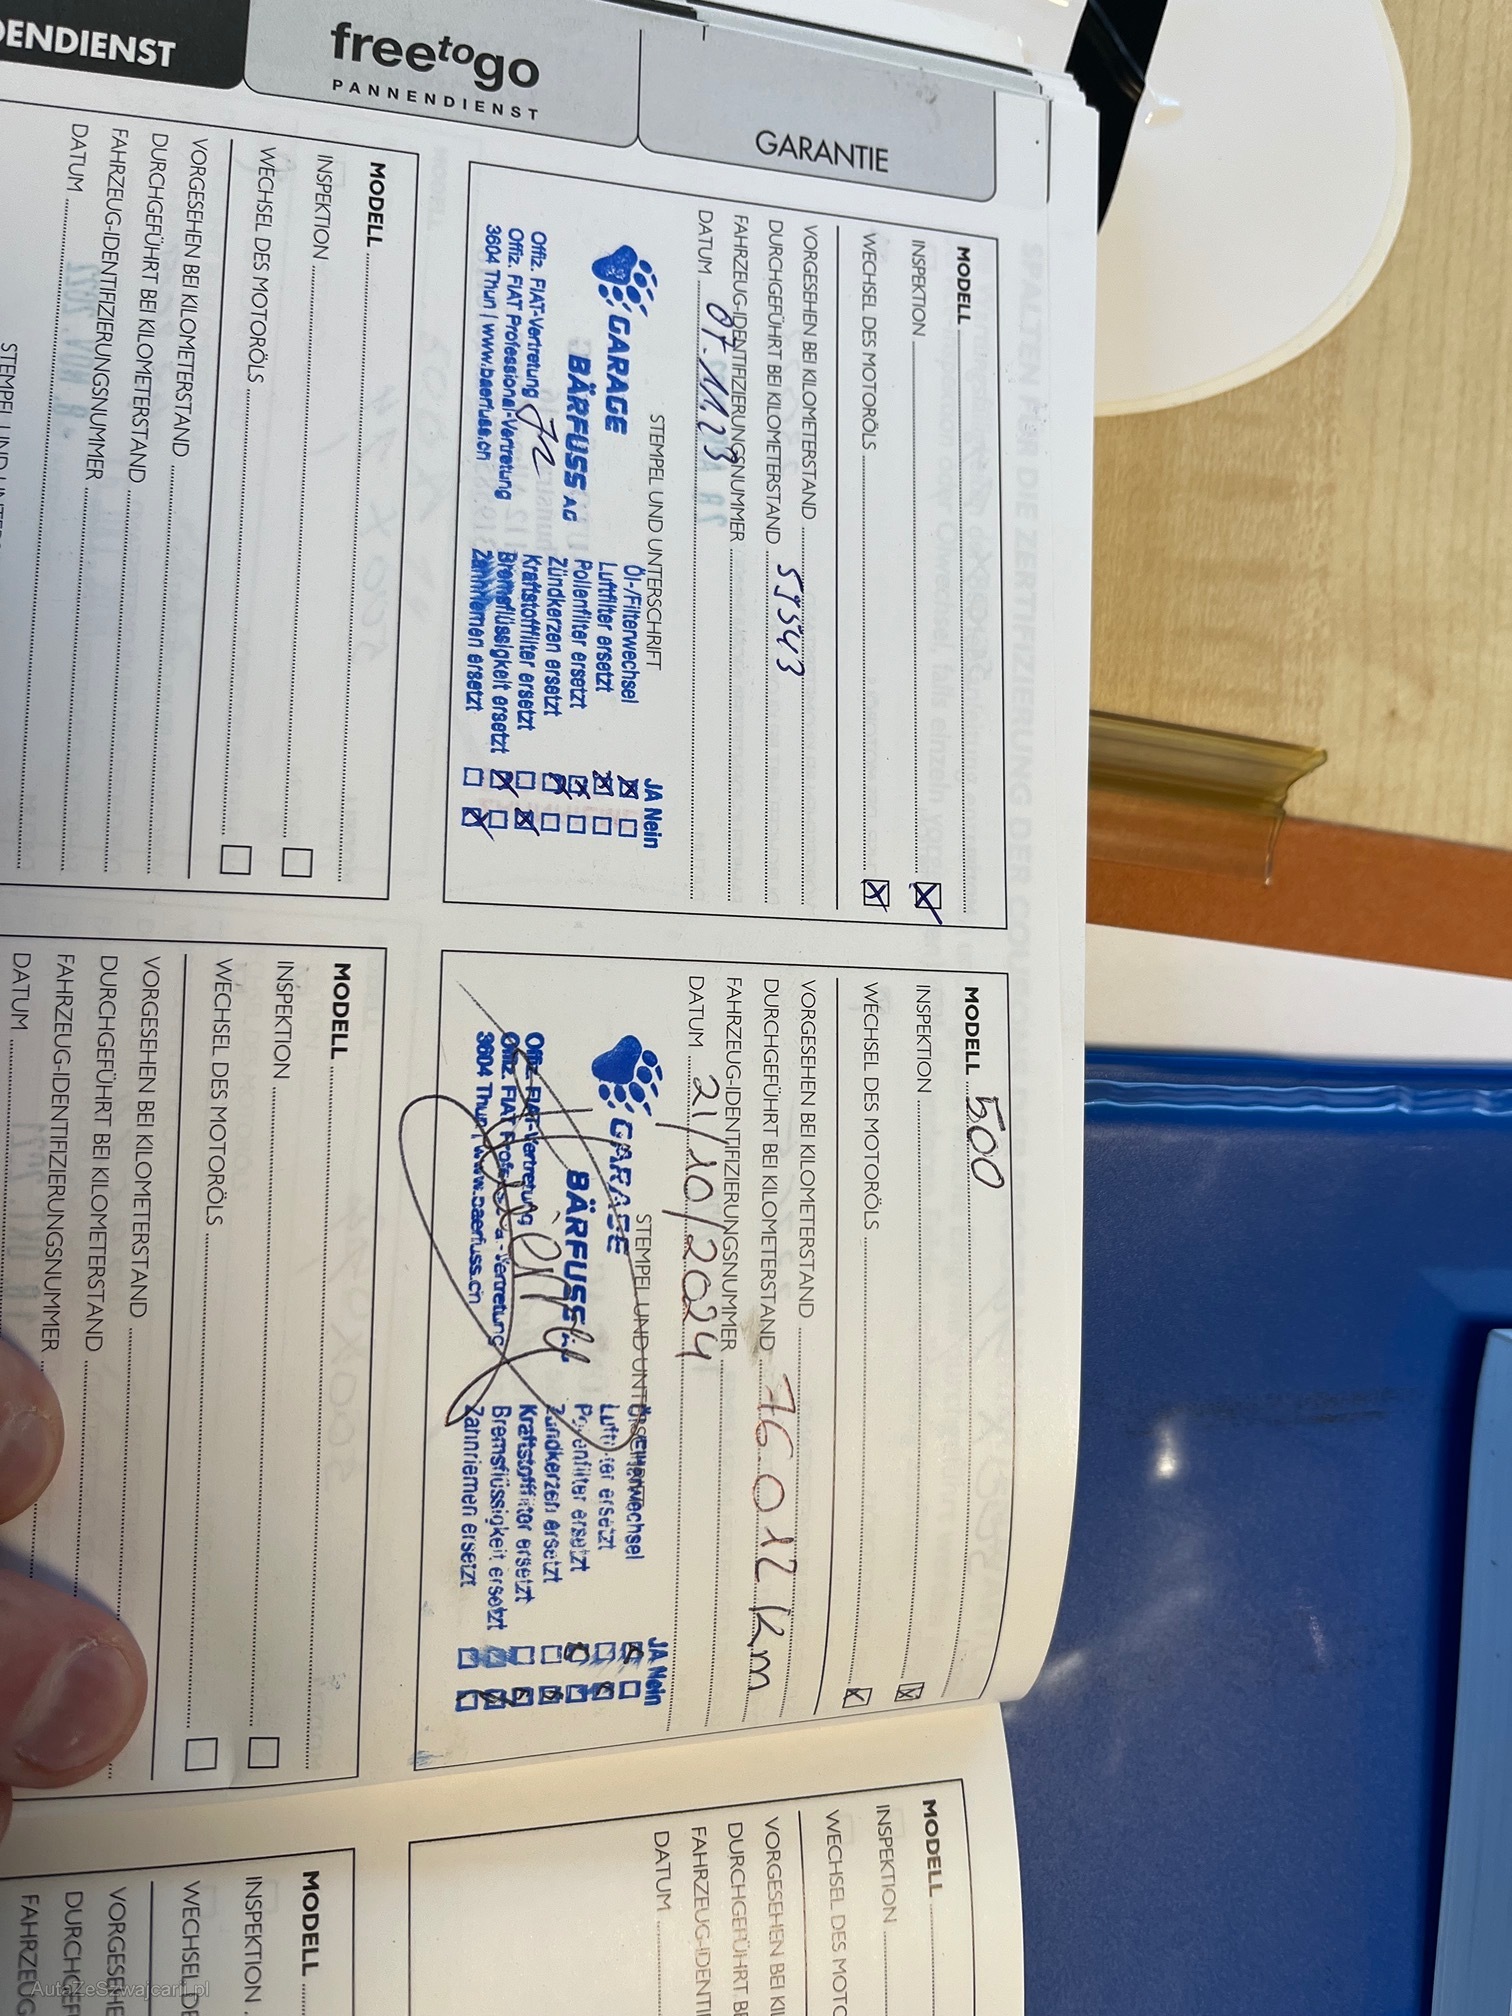 DENDIENST
freetogo
PANNENDIENST
GARANTIE
MODELL
INSPEKTION
WECHSEL DES MOTORÖLS
VORGESEHEN BEI KILOMETERSTAND
DURCHGEFÜHRT BEI KILOMETERSTAND
FAHRZEUG-IDENTIFIZIERUNGSNUMMER
DATUM 07.11.23
STEMPEL UND UNTERSCHRIFT
GARAGE
BÄRFUSS AG
Offiz. FIAT-Vertretung
Offiz. FIAT Professional-Vertretung
3604 Thun | www.baerfuss.ch
JA Nein
Öl-/Filterwechsel
Luftfilter ersetzt
Pollenfilter ersetzt
Zündkerzen ersetzt
Kraftstofffilter ersetzt
Bremsflüssigkeit ersetzt
Zahnriemen ersetzt
MODELL 500
INSPEKTION
WECHSEL DES MOTORÖLS
VORGESEHEN BEI KILOMETERSTAND
DURCHGEFÜHRT BEI KILOMETERSTAND 76012 Km
FAHRZEUG-IDENTIFIZIERUNGSNUMMER
DATUM 21/10/2024
STEMPEL UND UNTERSCHRIFT
GARAGE
BÄRFUSS
Offiz. FIAT-Vertretung
Offiz. FIAT Vertretung
3604 Thun | www.baerfuss.ch
JA Nein
Luftfilter ersetzt
Pollenfilter ersetzt
Zündkerzen ersetzt
Kraftstofffilter ersetzt
Bremsflüssigkeit ersetzt
Zahnriemen ersetzt
MODELL
INSPEKTION
WECHSEL DES MOTO
VORGESEHEN BEI KI
DURCHGEFÜHRT BE
FAHRZEUG-IDENTI
DATUM
MODELL
INSPEKTION
WECHSEL DES MOTORÖLS
VORGESEHEN BEI KILOMETERSTAND
DURCHGEFÜHRT BEI KILOMETERSTAND
FAHRZEUG-IDENTIFIZIERUNGSNUMMER
DATUM
STEMPEL UND
MODELL
INSPEKTION
WECHSEL DES MOTORÖLS
VORGESEHEN BEI KILOMETERSTAND
DURCHGEFÜHRT BEI KILOMETERSTAND
FAHRZEUG-IDENTIFIZIERUNGSNUMMER
DATUM
MODELL
INSPEKTION
WECHSEL DE
VORGESEHE
DURCHGEF
FAHRZEUG
AutaZeSzwajcarii.pl